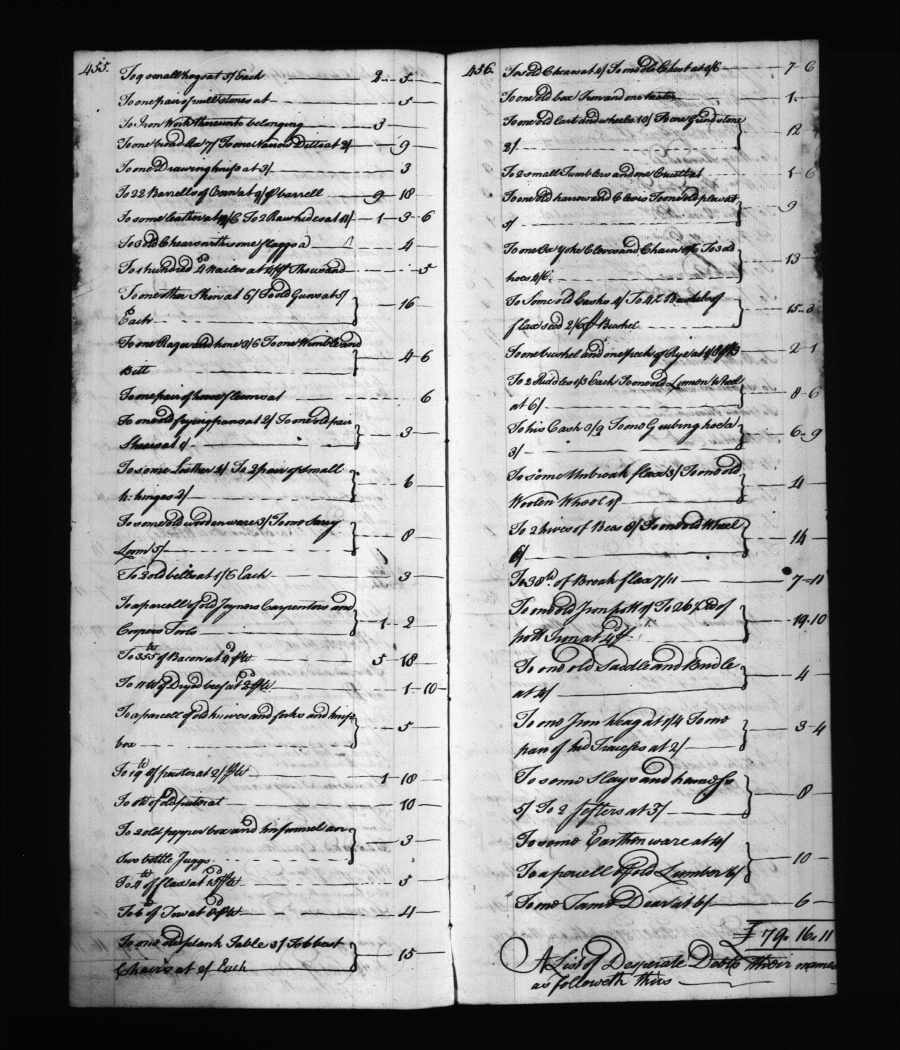 455.
To 9 small hogs at 5/ Each 2 - 5 -
To one pair of mill stones at 5 -
To Iron Work thereunto belonging 3 -
To one broad Ax 7/ To one Narrow Ditto at 2/ 9 -
To one Drawing knife at 3/ 3
To 22 Barrells of Corn at 9/ ⅌ barrell 9 18
To some leather at /6 To 2 Raw hides at 1 - 3 - 6
To 3 old Chears with some flaggs a 4 -
To 1 hundred 4d Nailes at ⅌ Thousand 5
To one other Skin at 6/ To old Guns at 5/
Each 16
To one Razor and hone 3/6 To one Wimble and
Bitt 4 - 6
To one pair of horse fleems at 6
To one old frying pan at 2/ To one old pair
Shears at 1/ 3 -
To some Leather 4/ To 2 pair of small
h: hinges 2/ 6
To some old wooden ware 3/ To one
Loom 5/ 8
To 2 old bells at 1/6 Each 3 -
To a parcell of old Joyners Carpenters and
Coopers Tools 1 - 2
To 355 lb of Bacon at 4d ⅌ lb 5 18
To 11 lb of Dryed beef at 2d ⅌ lb 1 - 10 -
To a parcell of old knives and forks and knife
box 5 -
To 19 lb of pewter at 2/ ⅌ lb 1 18
To lb of old pewter at 10 -
To 2 old pepper box and tin funnel an
two bottle Juggs 3 -
To 4 lb of flax at 15d ⅌ lb 5
To 6 lb of Tow at 8d ⅌ lb 4 -
To one old plank Table 3/ To best
Chairs at 2/ Each 15
456.
To old Chears at / To one old Chest at /6 7 - 6
To one old box Iron and one heater 1 -
To one old cart and wheels 10/ To one Grind stone
2/ 12
To 2 small Tumblers and one Cruett at 1 - 6
To one old harrow and Clevis To one old plow at
5/ 9
To one Ox yoke Clevis and Chain To 3 old
hoes 4/6 13
To Some old Casks 4/ To Bushels of
flax seed 2/6 ⅌ Bushel 15 - 3
To one bushel and one peck of Rye at 1/8 ⅌ B 2 - 1
To 2 Riddles 1/3 Each To one old Linnen Wheel
at 6/ 8 - 6
To his Cash 3/9 To one Grubing hoe
3/ 6 - 9
To some Unbroak flax 3/ To one old
Woolen Wheel 1/ 4
To 2 hives of Bees 8/ To one old Wheel
6/ 14
To 38 lb. of Break flax 7/11 7 - 11
To one old Iron pott / To 26½ lb of
pott Iron at 4d ⅌ 19 - 10
To one old Saddle and Bridle
at 4/ 4 -
To one Iron Weag at 1/4 To one
pair of hid Traces at 2/ 3 - 4
To some Slays and harness
5/ To 2 Sifters at 3/ 8 -
To some Earthen ware at 4/
To a parcell of old Lumber 6/ 10 -
To one Tame Dear at 6/ 6 -
£ 79 " 16 " 11
A List of Desperate Debts their names
as followeth this